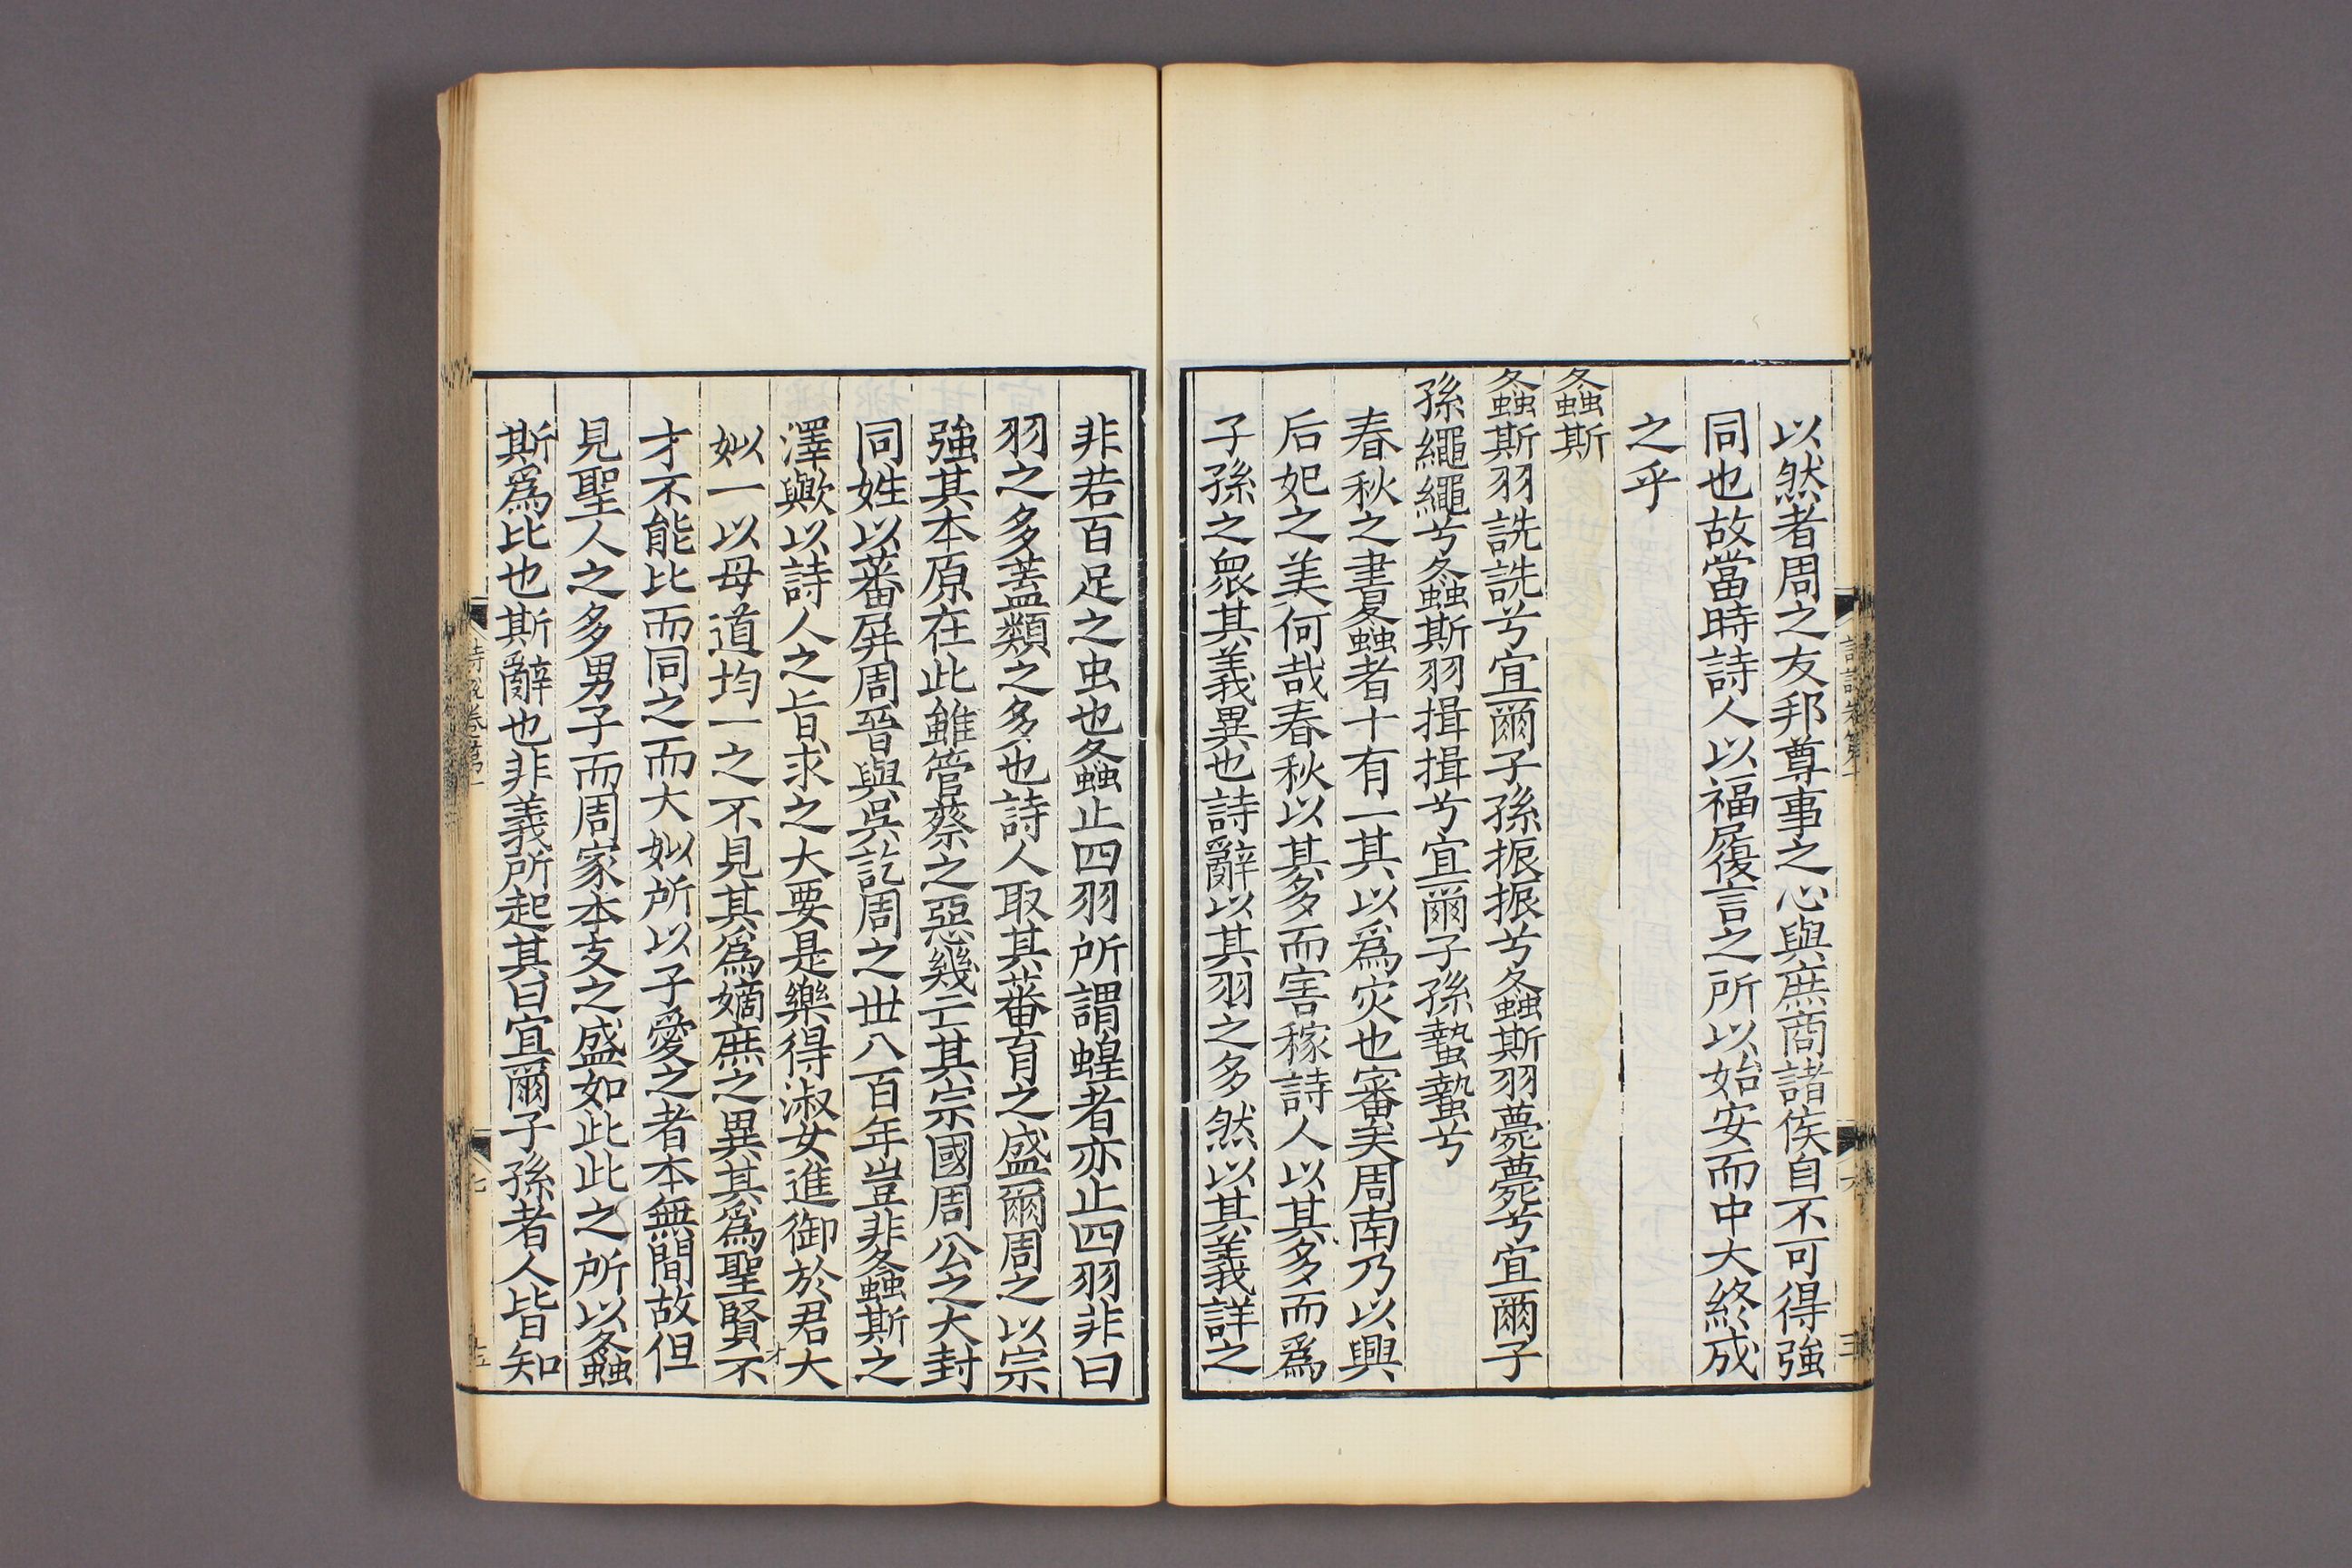 以然者周之友邦尊事之心與庶商諸侯自不可得強
同也故當時詩人以福履言之所以始安而中大終成
之乎
螽斯
螽斯羽詵詵兮宜爾子孫振振兮螽斯羽薨薨兮宜爾子
孫繩繩兮螽斯羽揖揖兮宜爾子孫蟄蟄兮
春秋之書螽者十有一其以爲灾也審矣周南乃以興
后妃之美何哉春秋以其多而害稼詩人以其多而爲
子孫之衆其義異也詩辭以其羽之多然以其義詳之
非若百足之虫也螽止四羽所謂蝗者亦止四羽非曰
羽之多盖類之多也詩人取其蕃育之盛爾周之以宗
強其本原在此雖管蔡之惡幾亡其宗國周公之大封
同姓以蕃屏周晉與吳訖周之世八百年豈非螽斯之
澤歟以詩人之旨求之大要是樂得淑女進御於君大
姒一以母道均一之不見其爲嫡庶之異其爲聖賢不
才不能比而同之而大姒所以子愛之者本無間故但
見聖人之多男子而周家本支之盛如此此之所以螽
斯爲比也斯辭也非義所起其曰宜爾子孫者人皆知